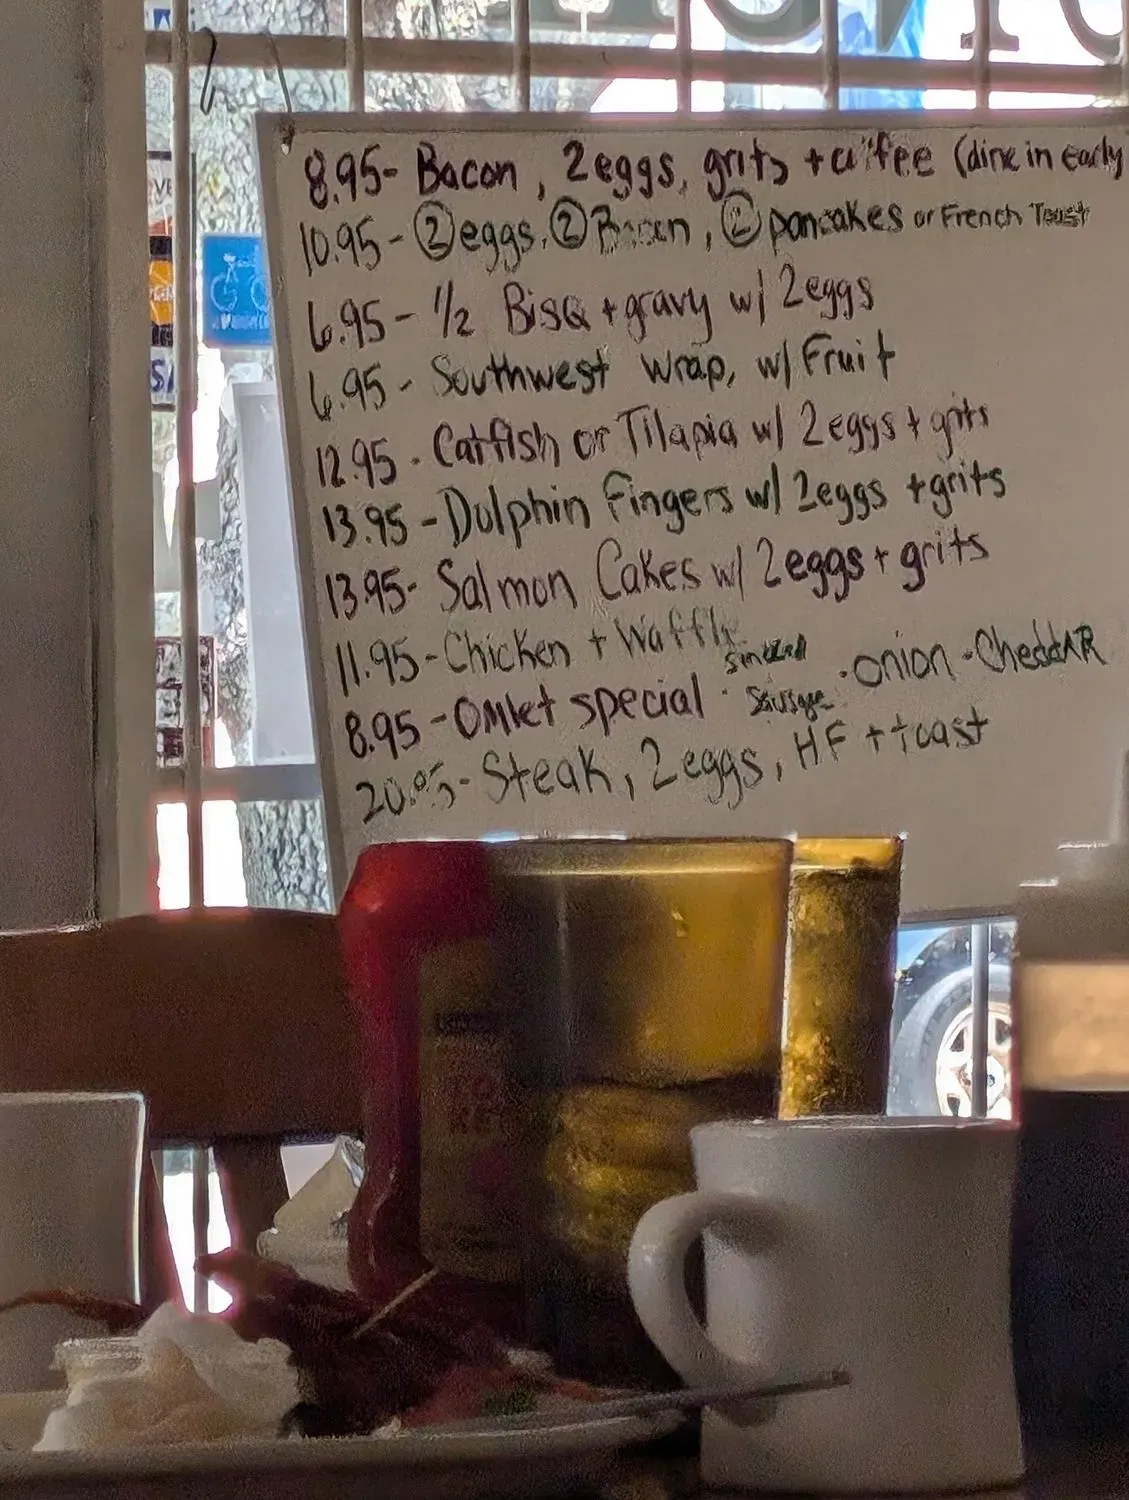 8.95- Bacon, 2eggs, grits + coffee (dine in early
10.95- ②eggs, ②Bacon, ②pancakes or French Toast
6.95- 1/2 Bis& + gravy w/ 2eggs
6.95- Southwest Wrap, w/ Fruit
12.95- Catfish or Tilapia w/ 2eggs + grits
13.95- Dolphin Fingers w/ 2eggs + grits
13.95- Salmon Cakes w/ 2eggs + grits
11.95- Chicken + Waffle
8.95- Omlet special · smoked sausage · onion · CheddAR
20.95- Steak, 2eggs, HF + toast